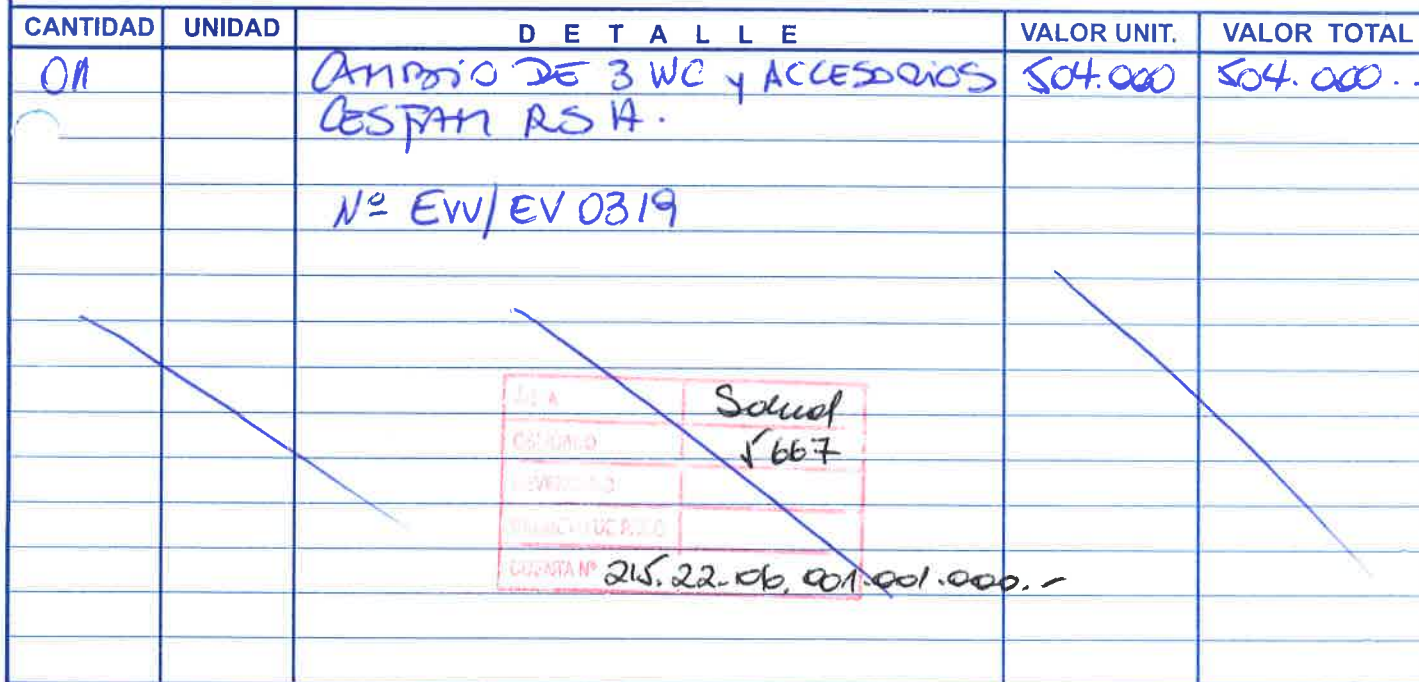 CANTIDAD UNIDAD DETALLE VALOR UNIT. VALOR TOTAL
01 CAMBIO DE 3 WC y ACCESORIOS 504.000 504.000.-
CESFAM RSH.
Nº EVV/EV 0319
Salud
5667
CUENTA Nº 215.22-06.001.001.000.-